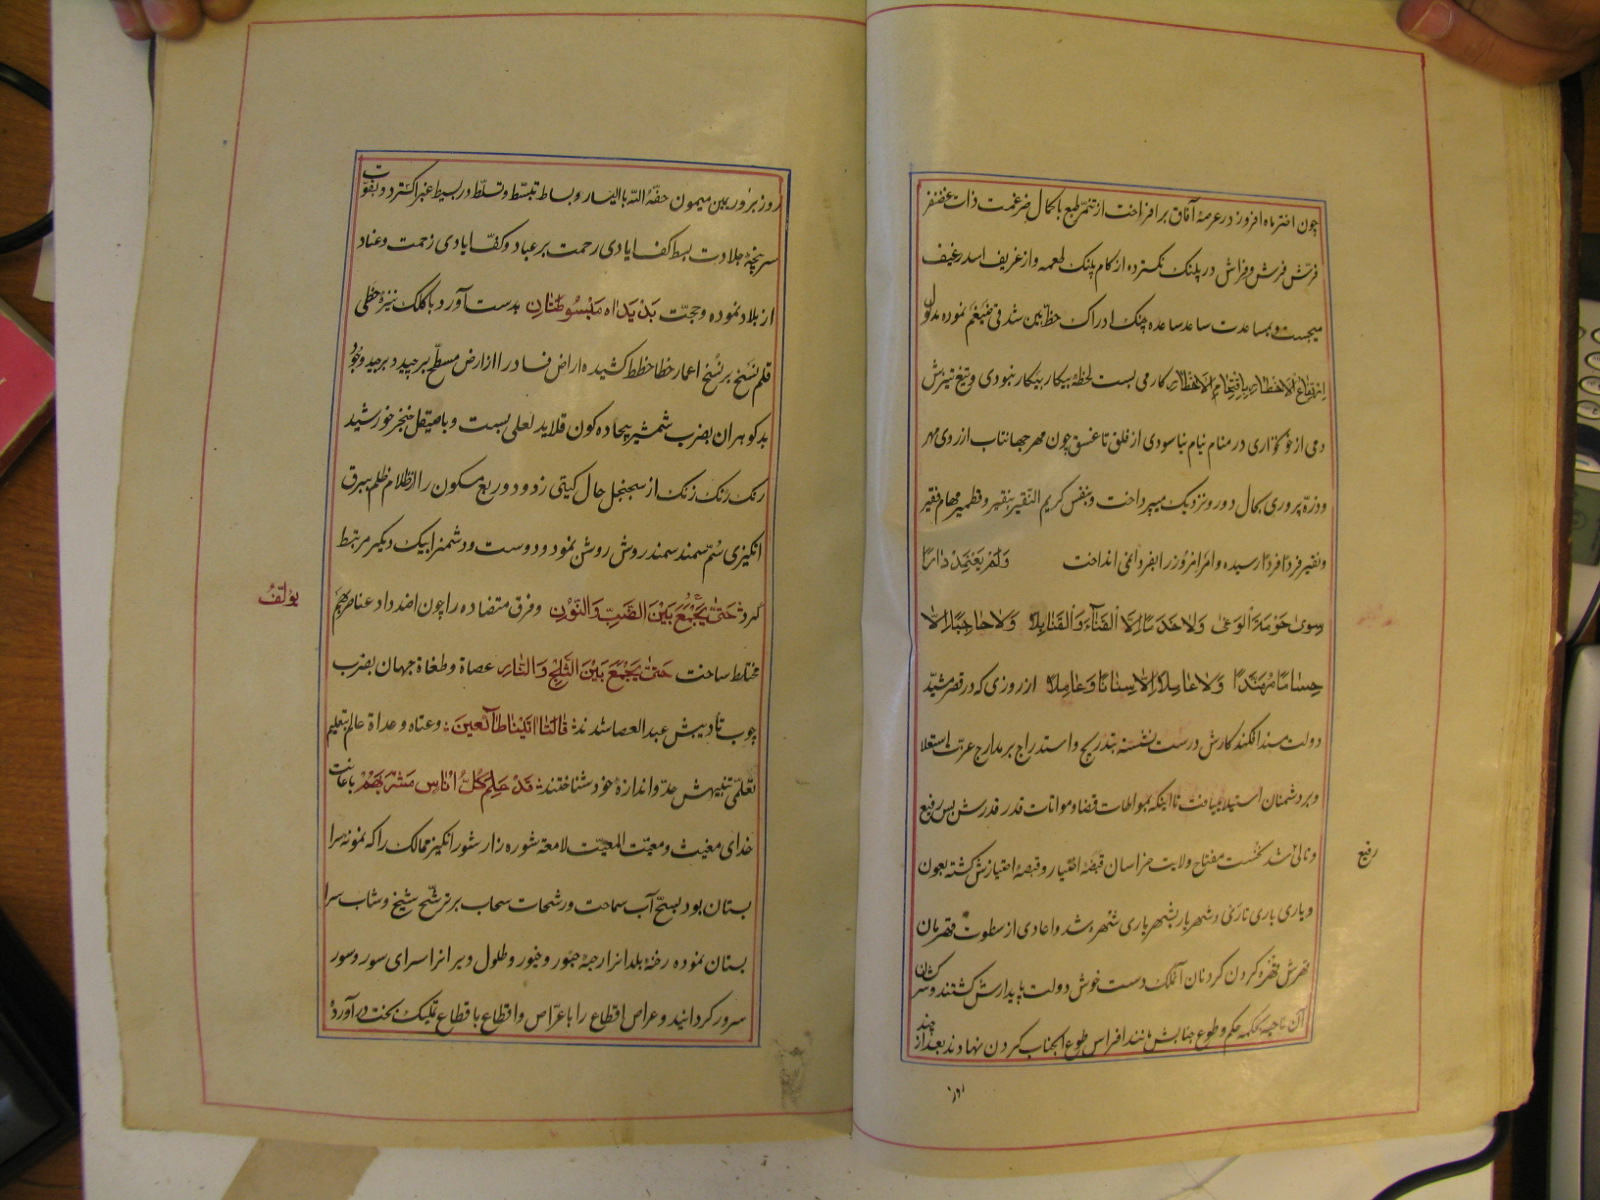 چون اختر ماه افروز در عرصهٔ آفاق برافراخت از تنمر طبع با کمال ضرغمت ذات غضنفر
فرش فرش و فراش در پلنک نکسترده از کام پلنک لعمه و از غریف اسد رغیف
میجست و بمساعدت ساعد ساعده چنک ادراک حظ نموده مدلول
کار می بست لحظهٔ بیکار به پیکار نبودی و تیغ تیزش
دمی از خونخواری در منام نیام نیاسودی از فلق تا غسق چون مهر جهانتاب از روی مهر
و ذره پروری بحال دور و نزدیک میپرداخت و بنفس کریم النقیر بنقیر و قطمیر مهام فقیر
و نقیر فردًا فردًا رسیده و امر امروز را بفردا نمی انداخت وَلَمْ یَعْتَمِدْ دٰارًا
سِویٰ حَوْمَةِ الْوَغیٰ وَلاٰ خَدَمًا اِلّاَ الْقَنٰا وَالْقَنٰابِلاٰ وَلاٰ حٰاجِبًا اِلاّٰ
حِسٰامًا مُهَنَّدًا وَلاٰ عٰامِلاً اِلاّٰ سِنٰانًا وَعٰامِلاً از روزی که در قصر مشیّد
دولت مسند افکند کارش درست نشسته بتدریج و استدراج بر مدارج عزت استعلا
و بر دشمنان استیلا مییافت تا اینکه بمواطات قضا و مواتات قدر قدرش بس رفیع
و نالی شد نخست مفتاح ولایت خراسان قبضهٔ اقتیار و قبصهٔ اختیارش کشته بعون
و یاری باری تارنی و شهریار بشهریاری شهره شد و اعادی از سطوت قهرمان
قهرش قهره کردن کردنان آنملک دست خوش دولت پایدارش کشتند و سرکشان
آن ناحیه بحکمه حکم و طوع جنابش مانند افراس طوع الجناب کردن نهادند بعد از چند
رفیع
روز
روز بروز بیمن میمون حفّهُ اللّه بالیسار و بساط تبسّط و تسلّط در بسیط غبرا کسترد و بقوّت
سرپنجهٔ جلادت بسط کف ایادی رحمت بر عباد و کفّ ایادی زحمت و عناد
از بلاد نموده و حجت بَدْ یَدٰاه مَبْسُوطَتٰانِ بدست آورد با کلک نیزهٔ خطّی
قلم نسخ بر نُسَخ اعمار خطا خطط کشیده اراض فساد را از ارض مسطّح برچید و برچید وجود
بدکوهران بضرب شمشیر بیجاده کون قلاید لعلی بست و با صیقل خنجر خورشید
رنک رنک زنک از سجنجل حال کیتی زدود و ربع مسکون را از ظلام ظلم ببرق
انکیزی سُمّ سمند سمندر روش روشن نمود و دوست و دشمنرا بیک دیکر مرتبط
کرد حَتیّٰ یَجْمَعَ بَیْنَ الضَّبِّ وَالنّوْنِ و فرق متضاده را چون اضداد عناصر بهم
بولفُ
مختلط ساخت حَتیّٰ یَجْمَعَ بَیْنَ الثَّلْجِ وَالنّارِ عصاة و طغاة جهان بضرب
چوب تأدیبش عبد العصا شدند قٰالَتٰا اَتَیْنٰا طٰآئِعینَ و عتاه و عداة عالم بتعلیم
تعلّمی تنبیهش حدّ و اندازهٔ خود شناختند قَدْ عَلِمَ کُلُّ اُنٰاسٍ مَشْرَبَهُمْ باعانت
خدای مغیث و معیّت المعیّت لامعه شوره زار شور انکیز ممالک را که نمونهٔ سرا
بستان بود بسحّ آب سماحت و رشحات سحاب بر ترشّح شیخ و شاب سرا
بستان نموده رخنهٔ بلدانرا رجبهٔ حبور و خبور و طلول ویرانرا سرای سور و سور
سرور کردانید و عراص اقطاع را با عرّاص و اقطاع با قطاع تملیک بحت درآورد